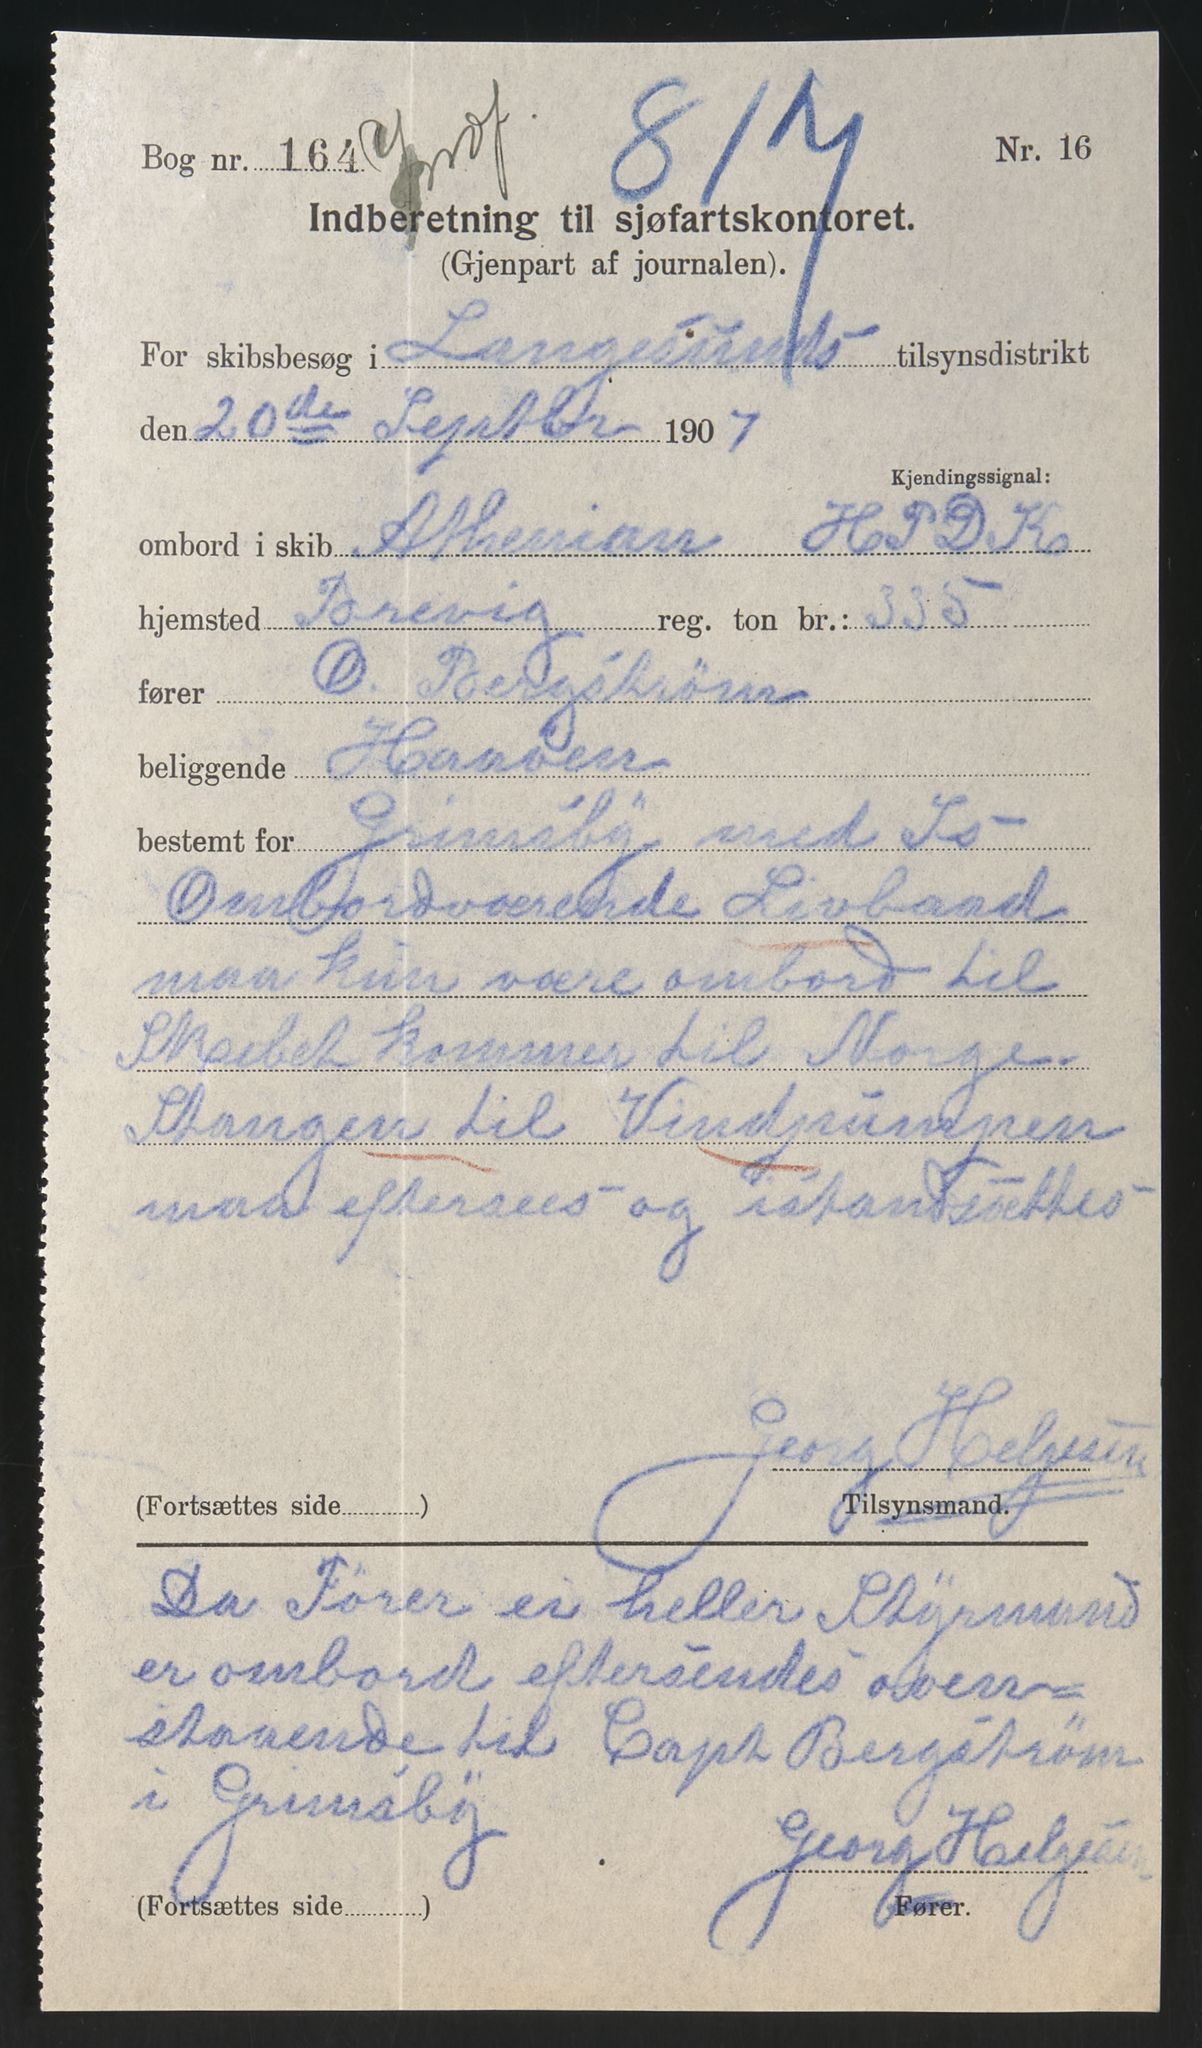 817
Bog nr. 164
Nr. 16
Indberetning til sjøfartskontoret.
(Gjenpart af journalen).
For skibsbesøg i Langesunds tilsynsdistrikt
den 20de Septbr 1907
Kjendingssignal:
ombord i skib Athenian H P D K
hjemsted Brevig reg. ton br.: 335
fører O. Bergström
beliggende Haaven
bestemt for Grimsby med Is
Ombordværende Livbaad
maa kun være ombord til
Skibet kommer til Norge.
Stangen til Vindpumpen
maa eftersees og istandsættes
Georg Helgesen
(Fortsættes side )
Tilsynsmand.
Da Förer ei heller Styrmand
er ombord eftersendes oven=
staaende til Capt Bergström
i Grimsby
Georg Helgesen
(Fortsættes side )
Fører.